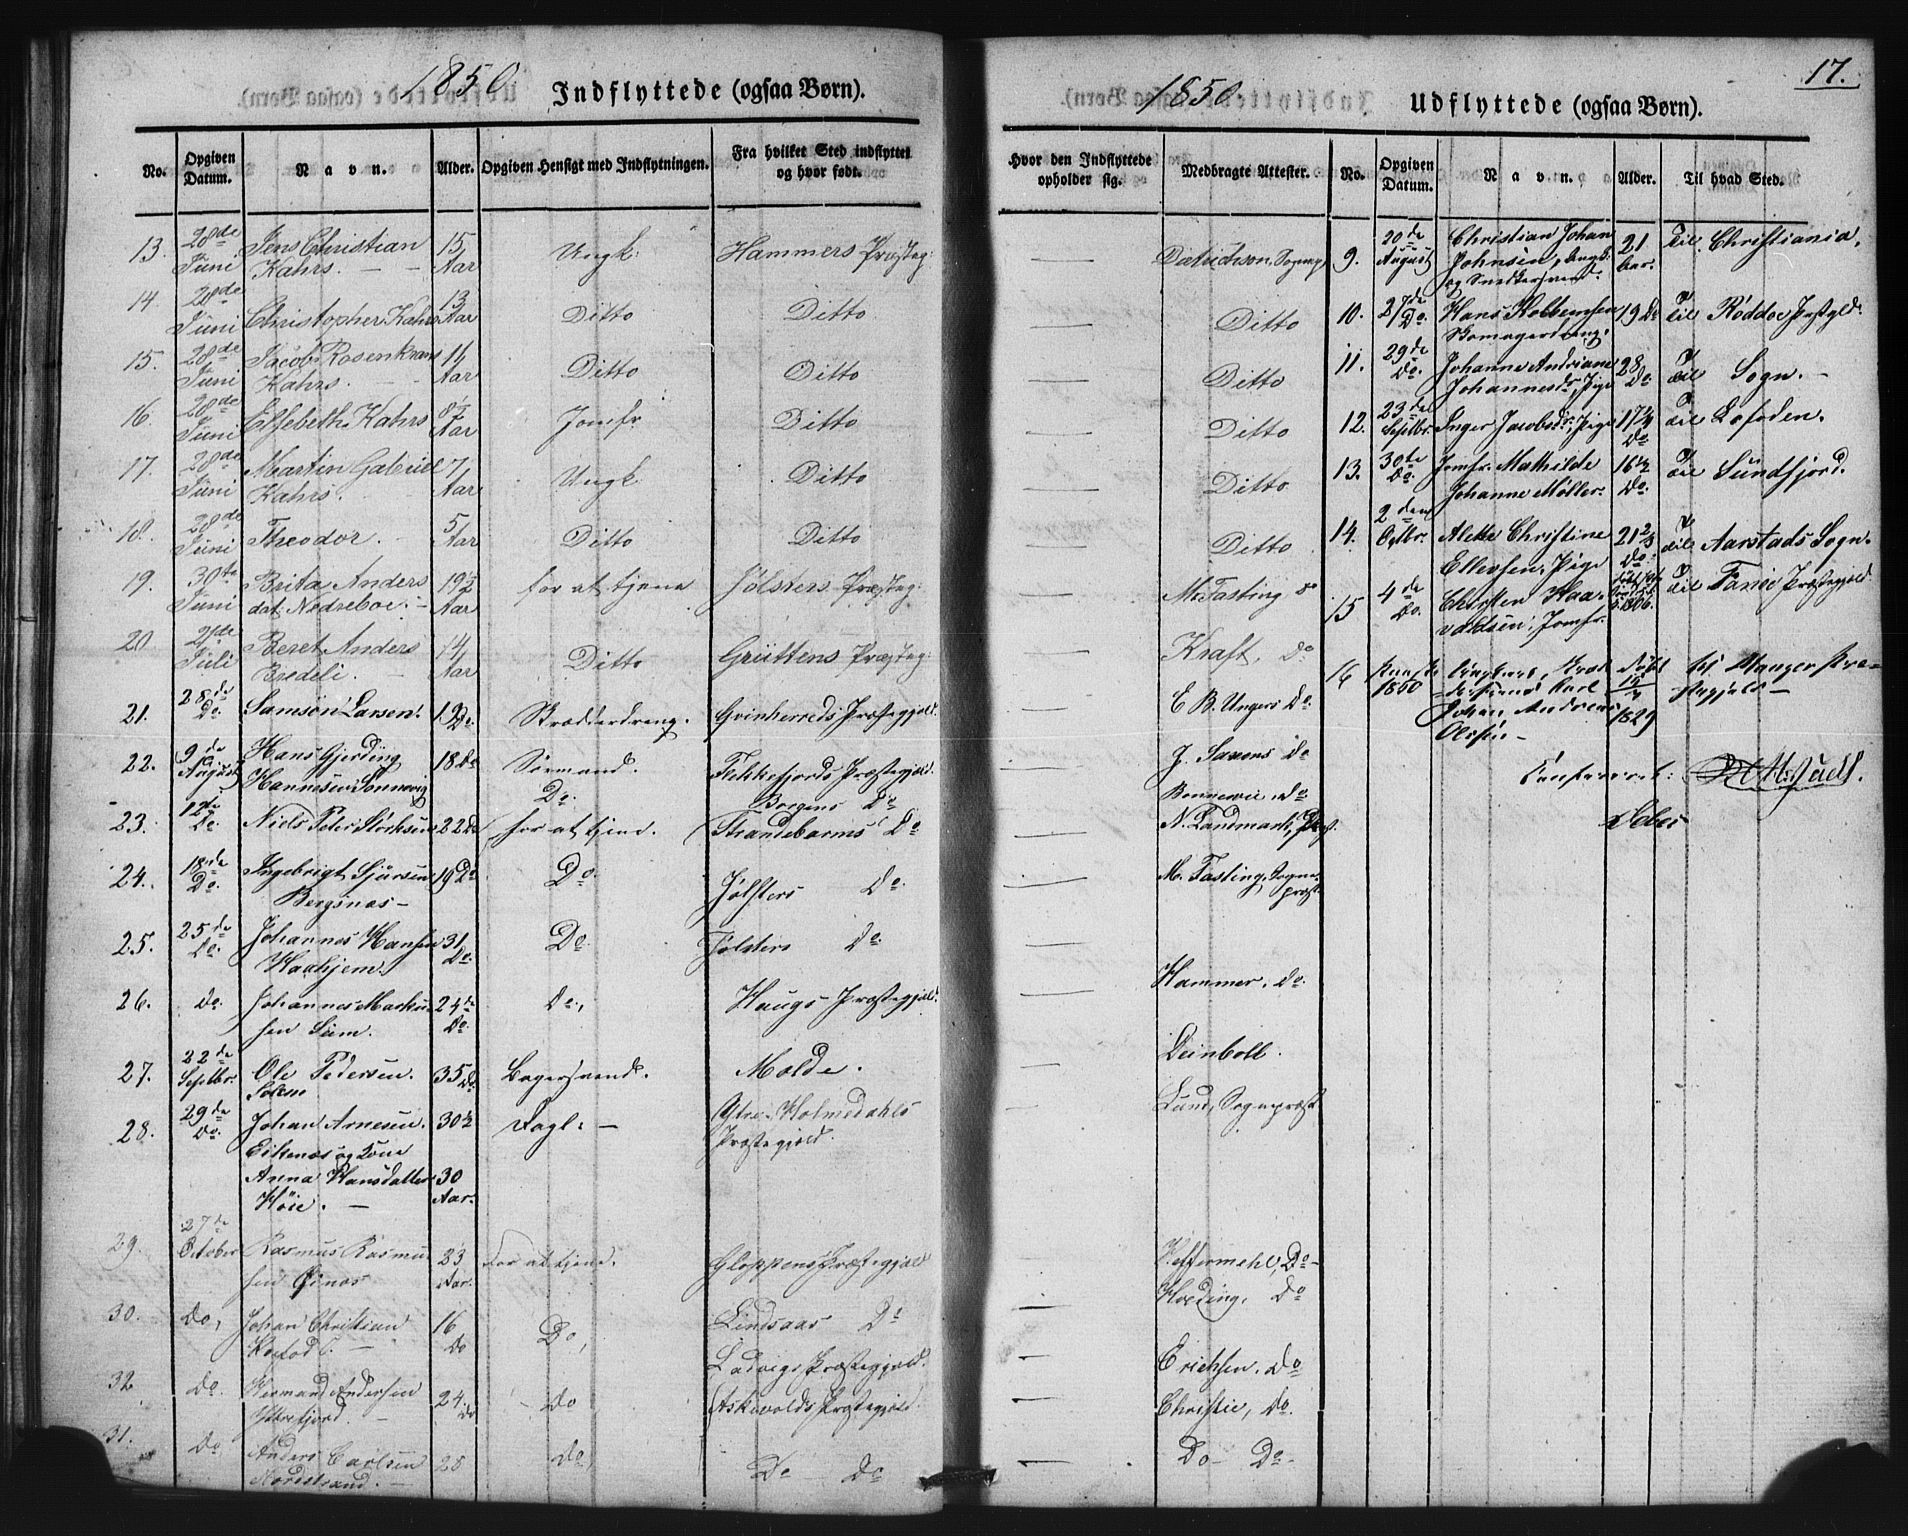 1850 Indflyttede (ogsaa Børn).
No. Opgiven Datum. Navn. Alder. Opgiven Hensigt med Indflytningen. Fra hvilket Sted indflyttet og hvor født.
13. 28de Juni Jens Christian Kahrs. 15 Aar Ungk. Hammers Præsteg:
14. 28de Juni Christopher Kahrs 13 Aar Ditto Ditto
15. 28de Juni Jacob Rosenkrans Kahrs. 11 Aar Ditto Ditto
16. 28de Juni Elsebeth Kahrs 8½ Aar Jomfr Ditto
17. 28de Juni Martin Gabriel Kahrs. 7 Aar Ungk Ditto
18. 28de Juni Theodor. 5 Aar Ditto Ditto
19. 30te Juni Brita Anders dat: Nedreboe. 19½ Aar for at tjene Jølsters Præsteg:
20 21de Juli Beret Anders Bredeli. 14 Aar Ditto Gryttens Præsteg:
21. 28de Do. Samson Larsen. 19 Do. Skrædderdreng. Qvinherreds Præstegjeld.
22. 9de August Hans Gjerding Hannesen Sonnevig 18 Do Sørmand. Flekkefjords Præstegjeld.
23. 12te Do. Niels Peter 22 Do Do. for at tjene. Borgens Do Strandebarms Do
24. 18de Do. Ingebrigt Sjursen Bergsnas 19 Do Do. Jølsters Do.
25. 25de Do. Johannes Hansen Haahjem 31 Do. Do. Jølsters Do.
26. Do. Johannes Markussen Siem. 24 Do. Do., Haugs Præstegjeld.
27. 22de Septbr. Ole Pedersen Solem 35 Do. Bagersvend. Molde.
28. 29de Do. Johan Arnesen Eikenæs og Kone 30½ Dagl. Ytre Holmedahls Præstegjeld.
Anna Hansdatter Høie. 30 Aar.
29. 27de October Rasmus Rasmussen 23 Aar. For at tjene. Gloppens Præstegjeld
30. Do, Johan Christian 16 Do Do, Lindaas Do Ladvigs Præstegjeld.
32 Do. Hermand Andersen Yttrefjord. 24 Do Do Askevolds Præstegjeld.
31. Do Anders Carlsen Nordstrand. 28 Do, Do Do
1850 Udflyttede (ogsaa Børn). 17.
Hvor den Indflyttede opholder sig. Medbragte Attester. No. Opgiven Datum. Navn. Alder. Til hvad Sted.
Didrichson, Sognep 9. 20de August Christian Johan Johnsen, Ungk. og Snedkersvend. 21 Aar. til Christiania.
Ditto 10. 27de Do. Hans 19 Do til Røddøe Præstgld.
Ditto 11. 29de Do. Johanne Andriane Johannesdr Pige 28 Do. til Sogn.
Ditto 12. 23de Septbr. Inger Jacobsdr. Pige 17¼ Do til Lofoden.
Ditto 13. 30te Do. Jomfr. Mathilde Johanne Møller. 16½ Do. til Sundfjord.
Ditto 14. 2den Octbr. Alette Christine Ellersen, Pige 21⅔ Do. til Aarstads Sogn.
M. Fasting 15 4de Do. Christen Haavaldsen, Jomfr. 1806. til Fanøe Præstegjeld
Kraft, Do 16 1850 Karl Johan Andreas Olsen født 1829 til Manger Præstegjeld
E. B. Ungers Do.
J. Saxens Do
Bonnevie, Do
N. Landmark, Præst.
M. Fasting, Sognepræst.
Hammer, Do.
Deinboll.
Lund, Sognepræst
Heffermehl, Do
Hording, Do
Erichsen, Do
Christie, Do.
Do Do